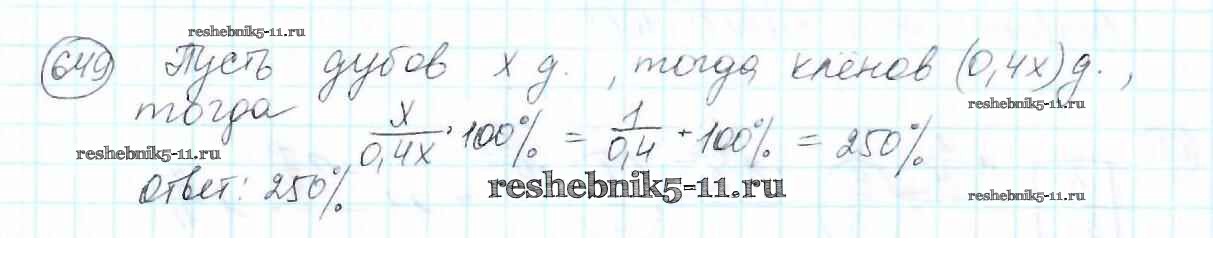 reshebnik5-11.ru
649 Пусть дубов x д., тогда клёнов (0,4x) д.,
reshebnik5-11.ru
тогда x/0,4x · 100% = 1/0,4 · 100% = 250%
reshebnik5-11.ru
Ответ: 250%
reshebnik5-11.ru
reshebnik5-11.ru